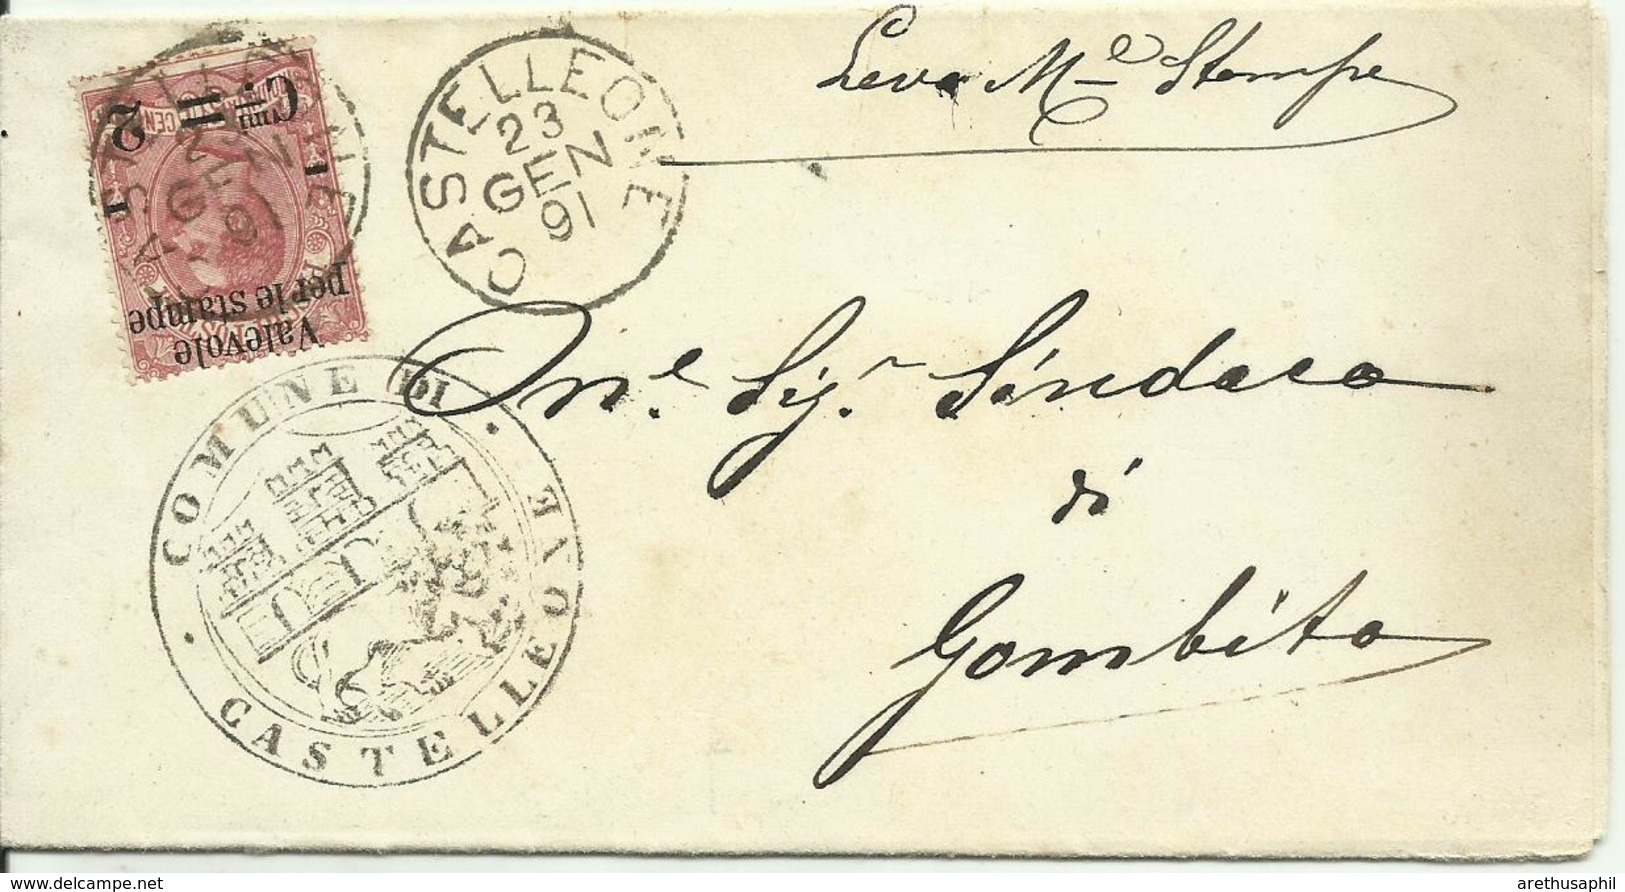 Leva M.e Stampe
CASTELLEONE
23
GEN
91
Valevole
per le stampe
Cmi. 2
COMUNE DI
CASTELLEONE
On.e Sig.r Sindaco
di
Gombito
delcampe.net
arethusaphil